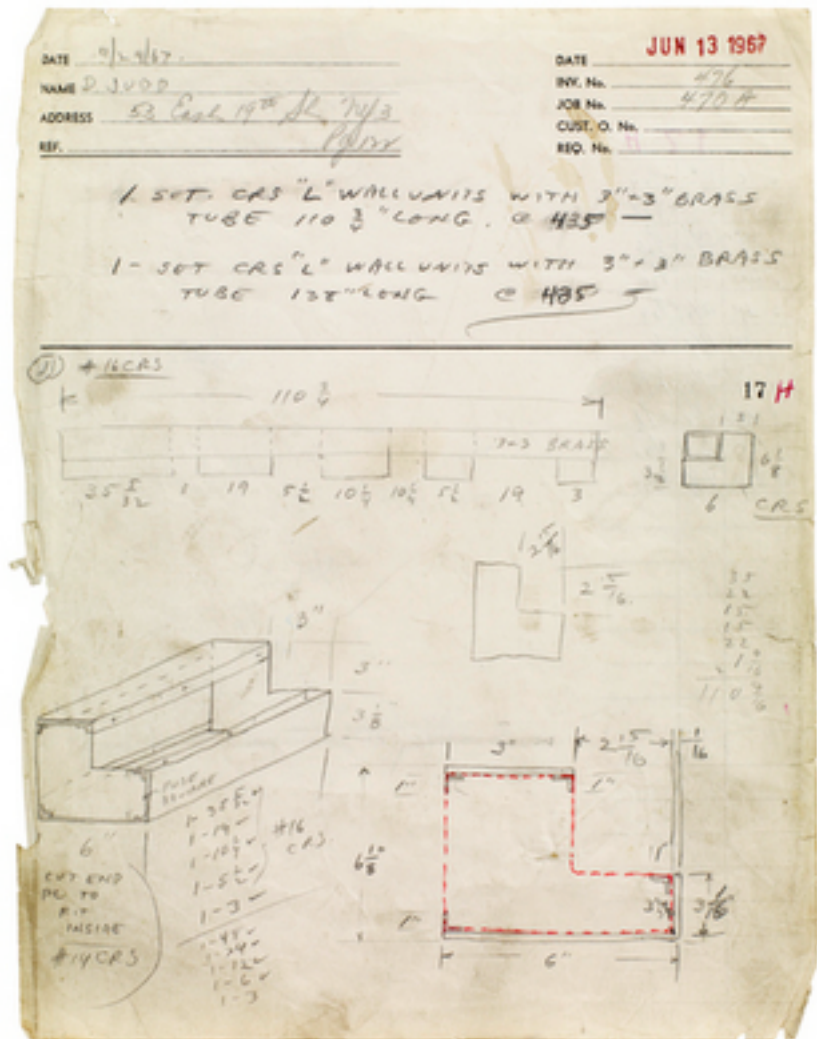 DATE
NAME D JUDD
ADDRESS 53 East 19th St. NY3
REF.
DATE JUN 13 1967
INV. No. 476
JOB No. 470 A
CUST. O. No.
REQ. No.
1 SET. CRS "L" WALL UNITS WITH 3"×3" BRASS
TUBE 110 3/4" LONG. @ 435 —
1- SET CRS "L" WALL UNITS WITH 3"×3" BRASS
TUBE LONG @ 435
#16 CRS
17 H
110 3/4
3×3 BRASS
35 5/32 1 19 5 1/2 10 1/4 10 1/4 5 1/2 19 3
3 1/8
6 1/8
6
CRS
2 5/16
3"
3"
3 1/8
6"
1-19
1-10 1/4
1-5 1/2
1-3
#16
CRS
CUT END
PC TO
FIT
INSIDE
#14 CRS
1-12
1-6
1-3
3"
2 15/16
1/16
1"
1"
6 1/8"
1"
1"
6"